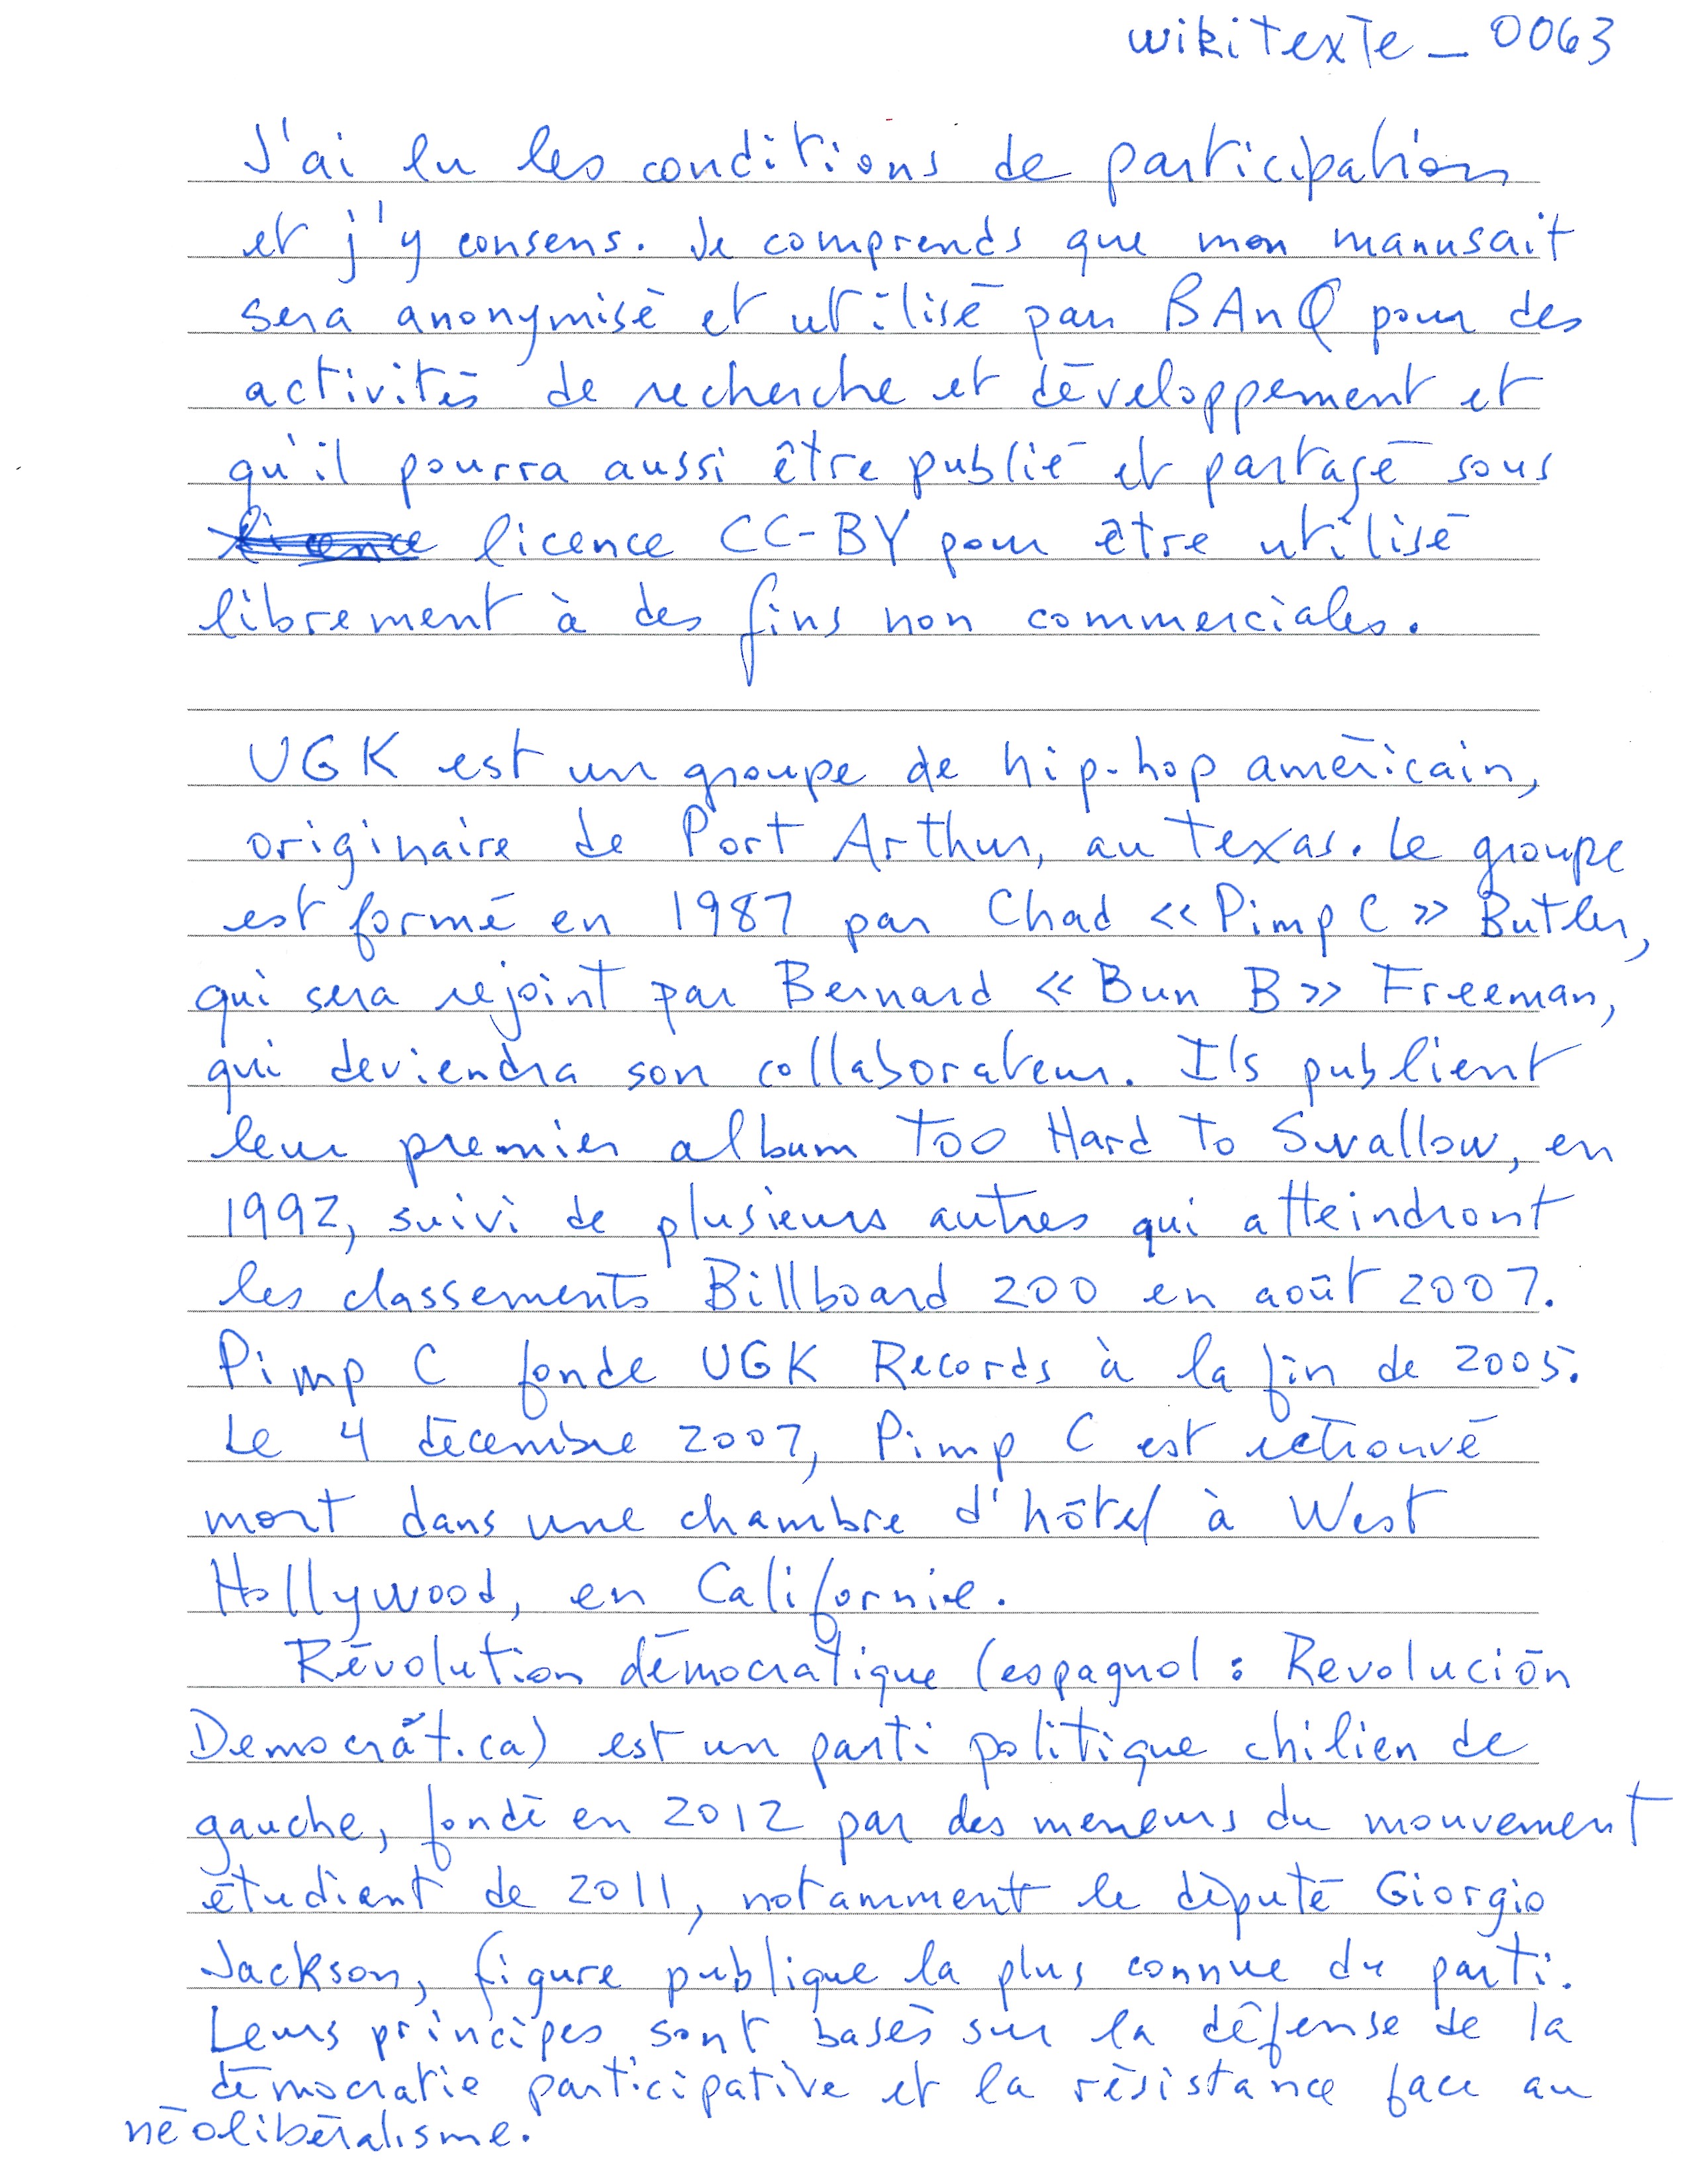 wikitexte_0063
J'ai lu les conditions de participation
et j'y consens. Je comprends que mon manuscrit
sera anonymisé et utilisé par BAnQ pour des
activités de recherche et développement et
qu'il pourra aussi être publié et partagé sous
licence licence CC-BY pour être utilisé
librement à des fins non commerciales.
UGK est un groupe de hip-hop américain,
originaire de Port Arthur, au Texas. Le groupe
est formé en 1987 par Chad « Pimp C » Butler,
qui sera rejoint par Bernard « Bun B » Freeman,
qui deviendra son collaborateur. Ils publient
leur premier album Too Hard to Swallow, en
1992, suivi de plusieurs autres qui atteindront
les classements Billboard 200 en août 2007.
Pimp C fonde UGK Records à la fin de 2005.
Le 4 décembre 2007, Pimp C est retrouvé
mort dans une chambre d'hôtel à West
Hollywood, en Californie.
Révolution démocratique (espagnol : Revolución
Democrática) est un parti politique chilien de
gauche, fondé en 2012 par des meneurs du mouvement
étudiant de 2011, notamment le député Giorgio
Jackson, figure publique la plus connue du parti.
Leurs principes sont basés sur la défense de la
démocratie participative et la résistance face au
néolibéralisme.